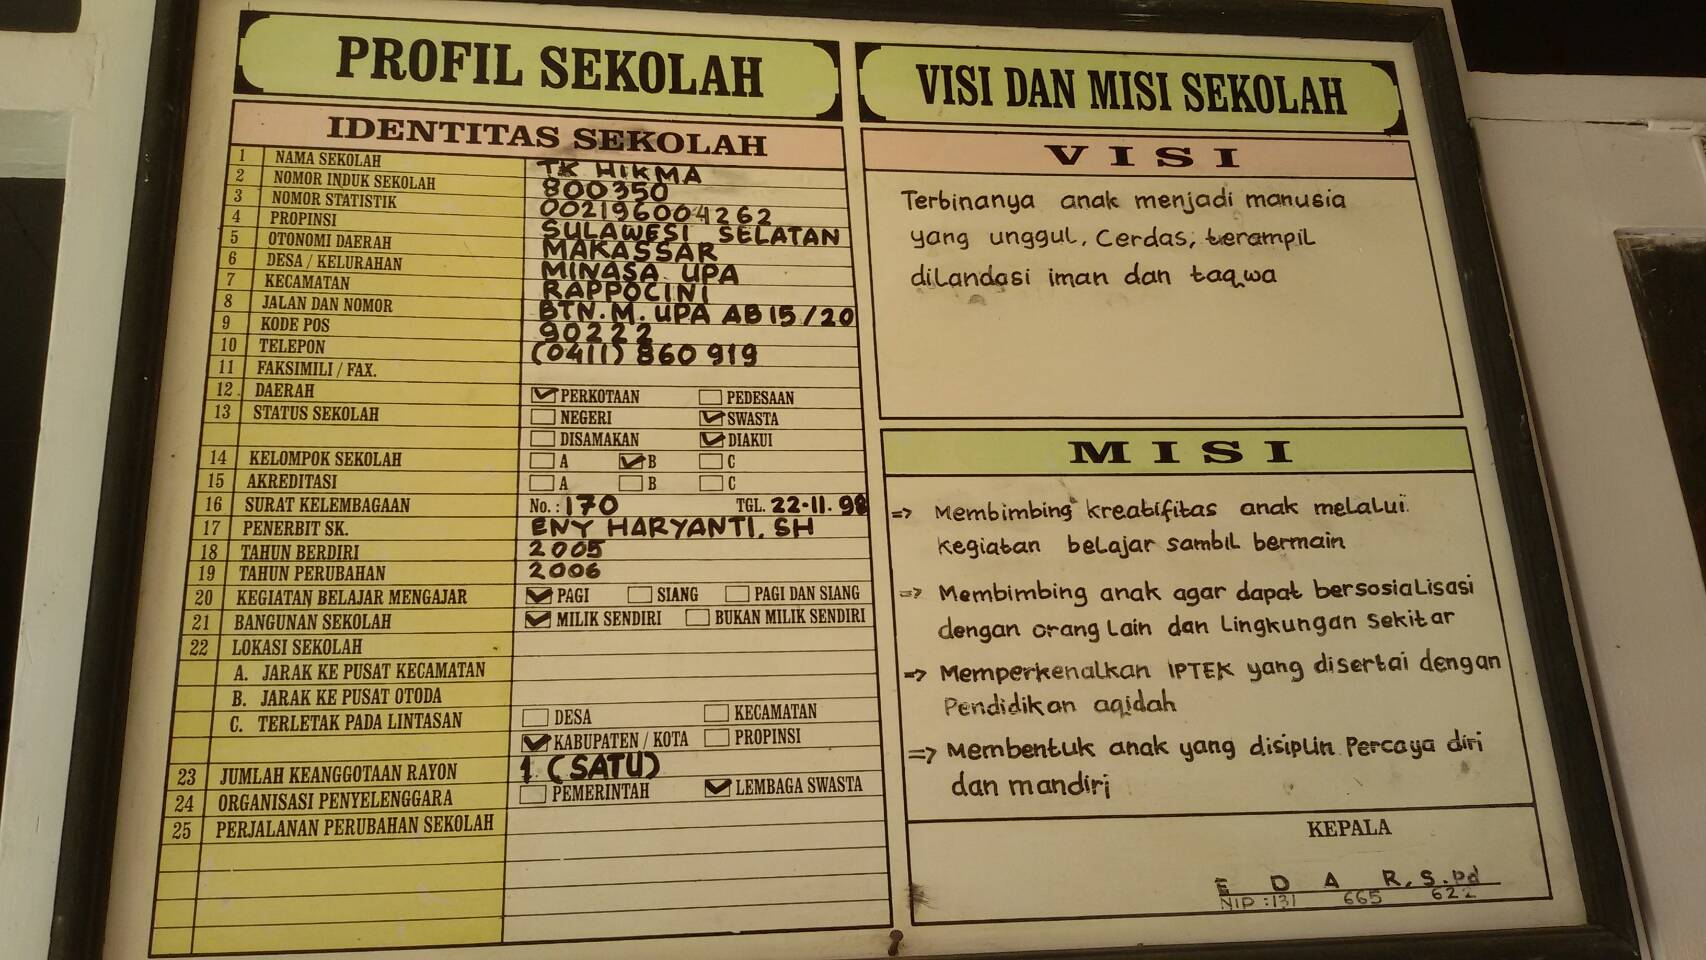 PROFIL SEKOLAH
IDENTITAS SEKOLAH
1 NAMA SEKOLAH TK HIKMA
2 NOMOR INDUK SEKOLAH 800350
3 NOMOR STATISTIK 002196004262
4 PROPINSI SULAWESI SELATAN
5 OTONOMI DAERAH MAKASSAR
6 DESA / KELURAHAN MINASA UPA
7 KECAMATAN RAPPOCINI
8 JALAN DAN NOMOR BTN. M. UPA AB 15 / 20
9 KODE POS 90222
10 TELEPON (0411) 860 919
11 FAKSIMILI / FAX.
12 DAERAH PERKOTAAN PEDESAAN
13 STATUS SEKOLAH NEGERI SWASTA
DISAMAKAN DIAKUI
14 KELOMPOK SEKOLAH A B C
15 AKREDITASI A B C
16 SURAT KELEMBAGAAN No. : 170 TGL. 22-11. 98
17 PENERBIT SK. ENY HARYANTI. SH
18 TAHUN BERDIRI 2005
19 TAHUN PERUBAHAN 2006
20 KEGIATAN BELAJAR MENGAJAR PAGI SIANG PAGI DAN SIANG
21 BANGUNAN SEKOLAH MILIK SENDIRI BUKAN MILIK SENDIRI
22 LOKASI SEKOLAH
A. JARAK KE PUSAT KECAMATAN
B. JARAK KE PUSAT OTODA
C. TERLETAK PADA LINTASAN DESA KECAMATAN
KABUPATEN / KOTA PROPINSI
23 JUMLAH KEANGGOTAAN RAYON 1 (SATU)
24 ORGANISASI PENYELENGGARA PEMERINTAH LEMBAGA SWASTA
25 PERJALANAN PERUBAHAN SEKOLAH
VISI DAN MISI SEKOLAH
VISI
Terbinanya anak menjadi manusia
yang unggul, Cerdas, terampil
dilandasi iman dan taqwa
MISI
=> Membimbing kreatifitas anak melalui
kegiatan belajar sambil bermain
=> Membimbing anak agar dapat bersosialisasi
dengan orang lain dan lingkungan sekitar
=> Memperkenalkan IPTEK yang disertai dengan
Pendidikan aqidah
=> Membentuk anak yang disiplin Percaya diri
dan mandiri
KEPALA
E D A R, S.Pd
NIP : 131 665 622